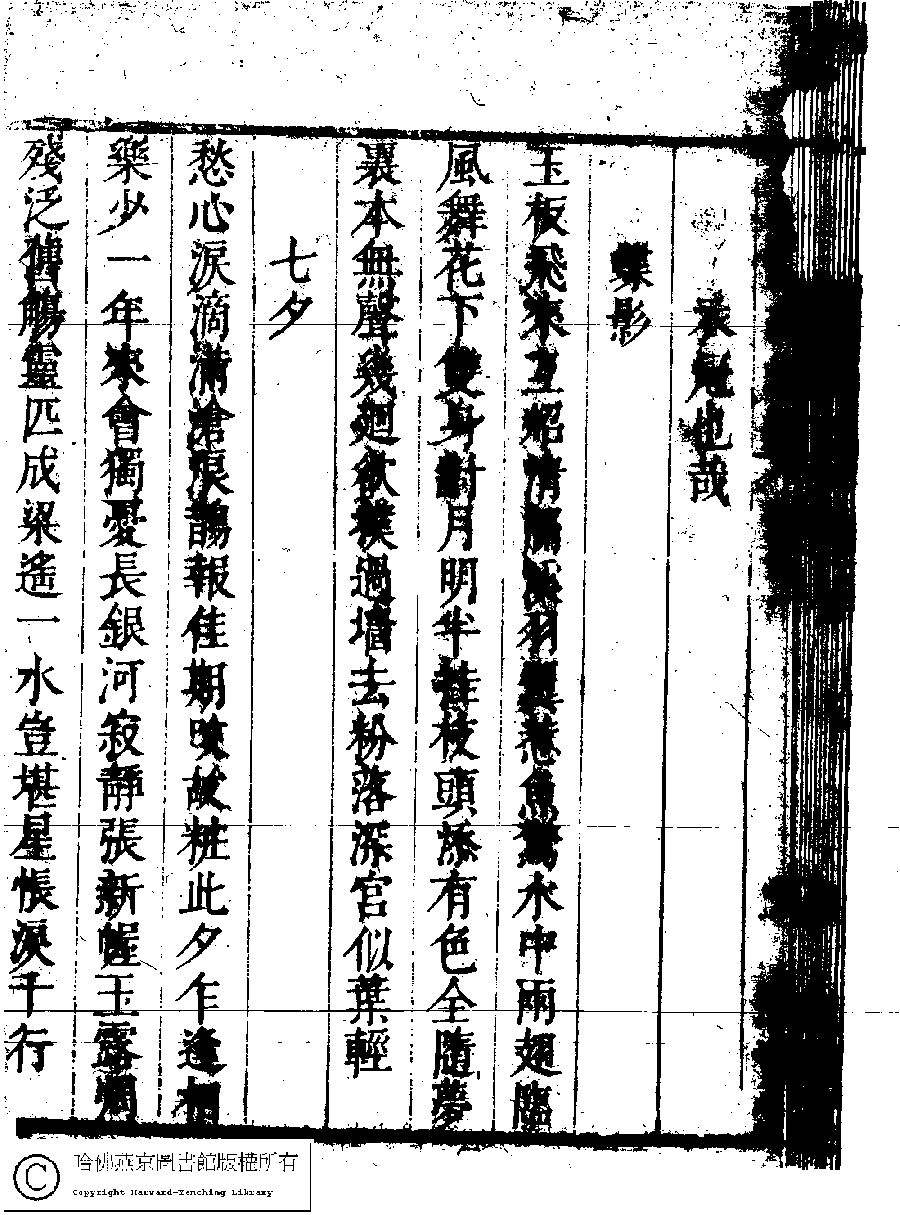 哉
蝶影
玉板飛來 羽 魚驚水中兩翅臨
風舞花下雙身對月明半 枝頭添有色全隨夢
裏本無聲幾廻欲撲過墻去粉落深宮似葉輕
七夕
愁心淚滴滿滄浪鵲報佳期映故粧此夕乍逢相
樂少一年來會獨憂長銀河寂靜張新幄玉露
殘泛舊觴靈匹成梁遙一水豈堪星帳淚千行
哈佛燕京圖書館版權所有
Copyright Harvard-Yenching Library